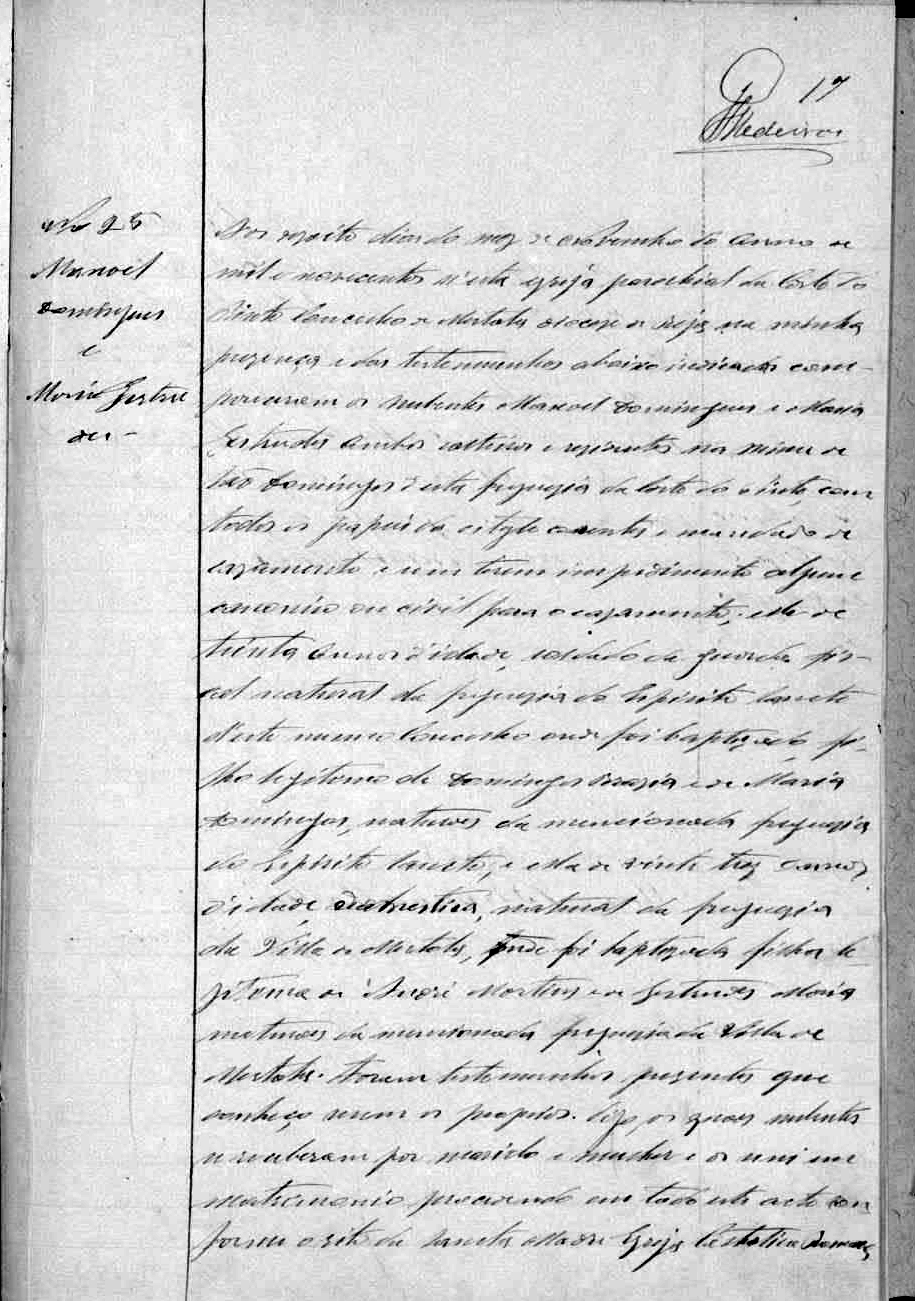 17
Medeiros
No 25
Manoel
Domingues
e
Maria Gertru
des -
Aos dezoito dias do mez de Novembro do anno de
mil e novecentos n'esta egreja parochial da Corte do
Pinto Concelho de Mertola diocese de Beja, na minha
presença e das testemunhas abaixo indicadas com-
pareceram os nubentes Manoel Domingues e Maria
Gertrudes ambos solteiros e residentes na mina de
São Domingos d'esta freguezia da Corte do Pinto, com
todos os papeis do estylo correntes e mandado de
cazamento e sem terem impedimento algum
canonico ou civil para o cazamento; elle de
trinta annos d'idade, soldado da guarda fis-
cal natural da freguezia do Espirito Sancto
d'este mesmo Concelho onde foi baptizado, fi-
lho legitimo de Domingos e de Maria
Domingas, naturaes da mencionada freguezia
do Espirito Sancto, e ella de vinte tres annos
d'idade, domestica, natural da freguezia
da Villa de Mertola, onde foi baptizada filha le
gitima de André Martins e de Gertrudes Maria
naturaes da mencionada freguezia da Villa de
Mertola. Foram testemunhas presentes que
conheço serem os proprios. Digo, os quaes nubentes
se receberam por marido e mulher e os uni em
matrimonio procedendo em todo este acto con
forme o rito da Sancta Madre Egreja Catholica Romana